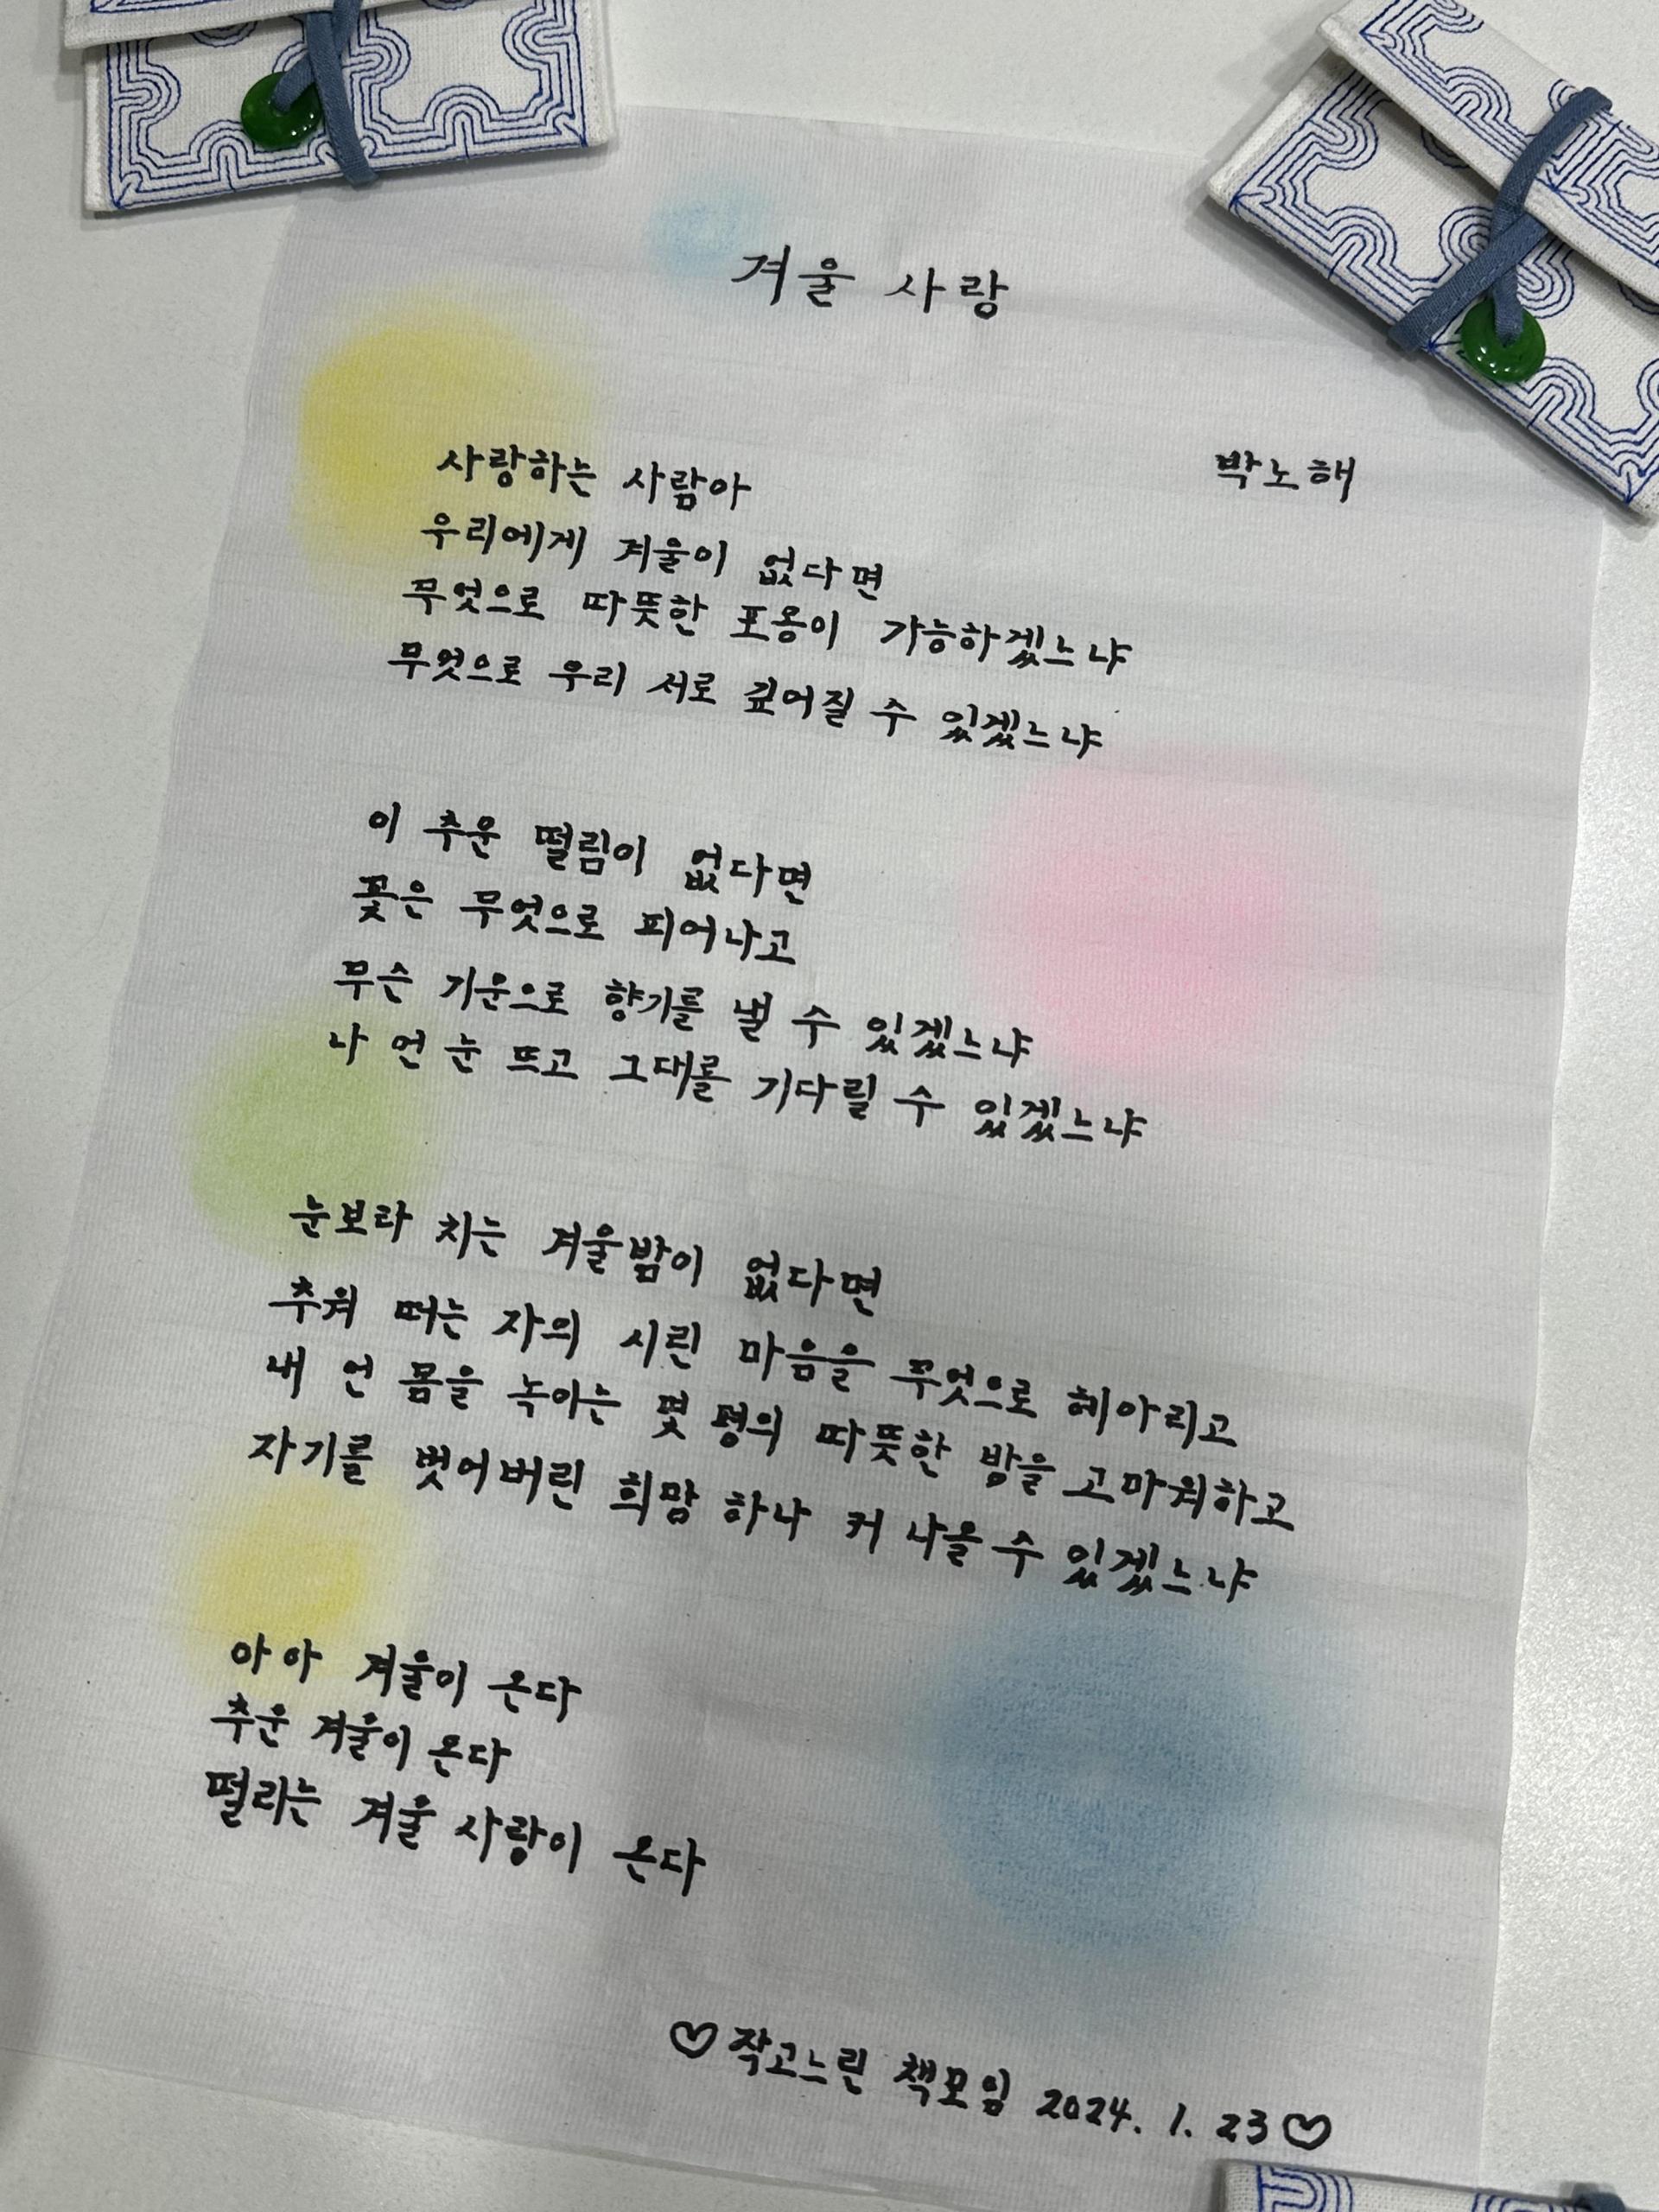 겨울 사랑
박노해
사랑하는 사람아
우리에게 겨울이 없다면
무엇으로 따뜻한 포옹이 가능하겠느냐
무엇으로 우리 서로 깊어질 수 있겠느냐
이 추운 떨림이 없다면
꽃은 무엇으로 피어나고
무슨 기운으로 향기를 낼 수 있겠느냐
나 언 눈 뜨고 그대를 기다릴 수 있겠느냐
눈보라 치는 겨울밤이 없다면
추워 떠는 자의 시린 마음을 무엇으로 헤아리고
내 언 몸을 녹이는 몇 평의 따뜻한 방을 고마워하고
자기를 벗어버린 희망 하나 커 나올 수 있겠느냐
아아 겨울이 온다
추운 겨울이 온다
떨리는 겨울 사랑이 온다
♡작고느린 책모임 2024. 1. 23♡